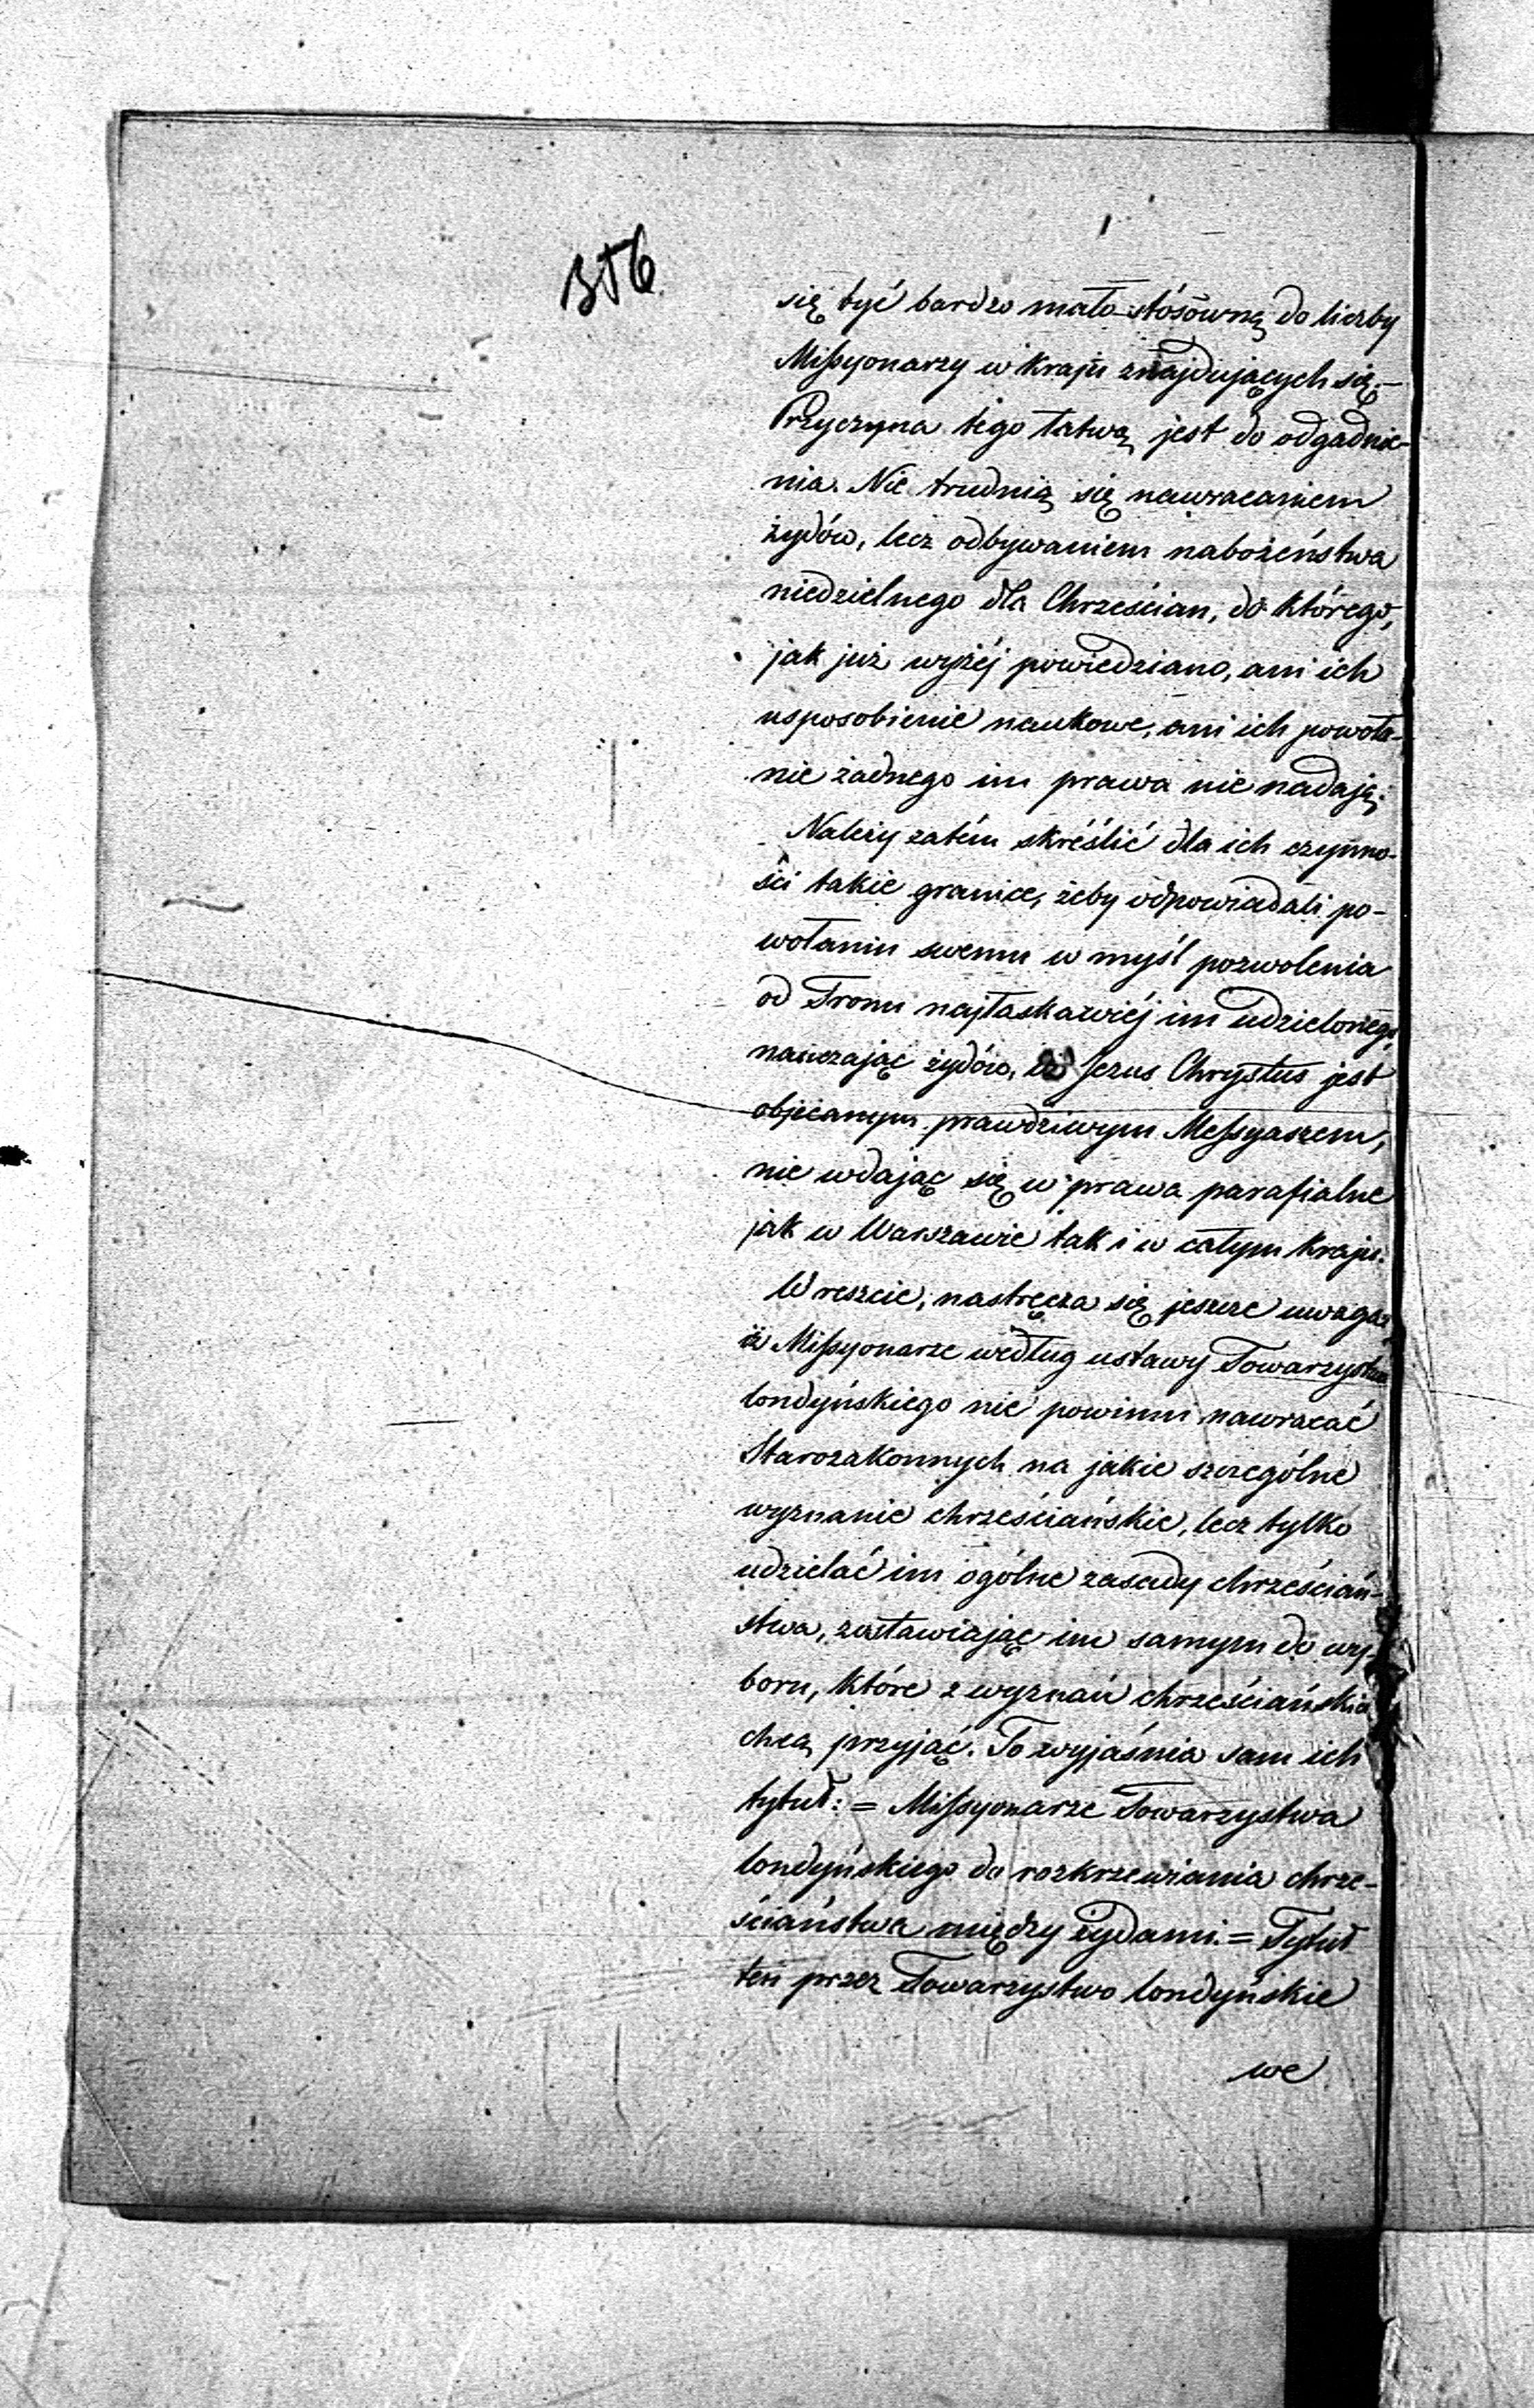 356
się być bardzo mało stósówną do liczby
Missyonarzy w kraju znajdujących się.—
Przyczyna tego łatwą jest do odgadnie-
nia. Nie trudnią się nawracaniem
żydów, lecz odbywaniem nabożeństwa
niedzielnego dla Chrześcian, do którego,
jak już wyżéj powiedziano, ani ich
usposobienie naukowe, ani ich powoła-
nie żadnego im prawa nie nadają.
Należy zatém skréślić dla ich czynno-
ści takie granice, żeby odpowiadali po-
wołaniu swemu w myśl pozwolenia
od Tronu najłaskawiéj im udzielonego,
nauczając żydów, iż Jezus Chrystus jest
objécanym prawdziwym Messyaszem,
nie wdając się w prawa parafialne
jak w Warszawie tak i w całym kraju.
Wreszcie, nastręcza się jeszcze uwaga,
iż Missyonarze według ustawy Towarzystwa
londyńskiego nie powinni nawracać
Starozakonnych na jakie szczególne
wyznanie chrześciańskie, lecz tylko
udzielać im ogólne zasady chrześciań-
stwa, zostawiając im samym do wy-
boru, które z wyznań chrześciańskich
chcą przyjąć. To wyjaśnia sam ich
tytuł: = Missyonarze Towarzystwa
londyńskiego do rozkrzewiania chrze-
ściaństwa między żydami. = Tytuł
ten przez Towarzystwo londyńskie
we